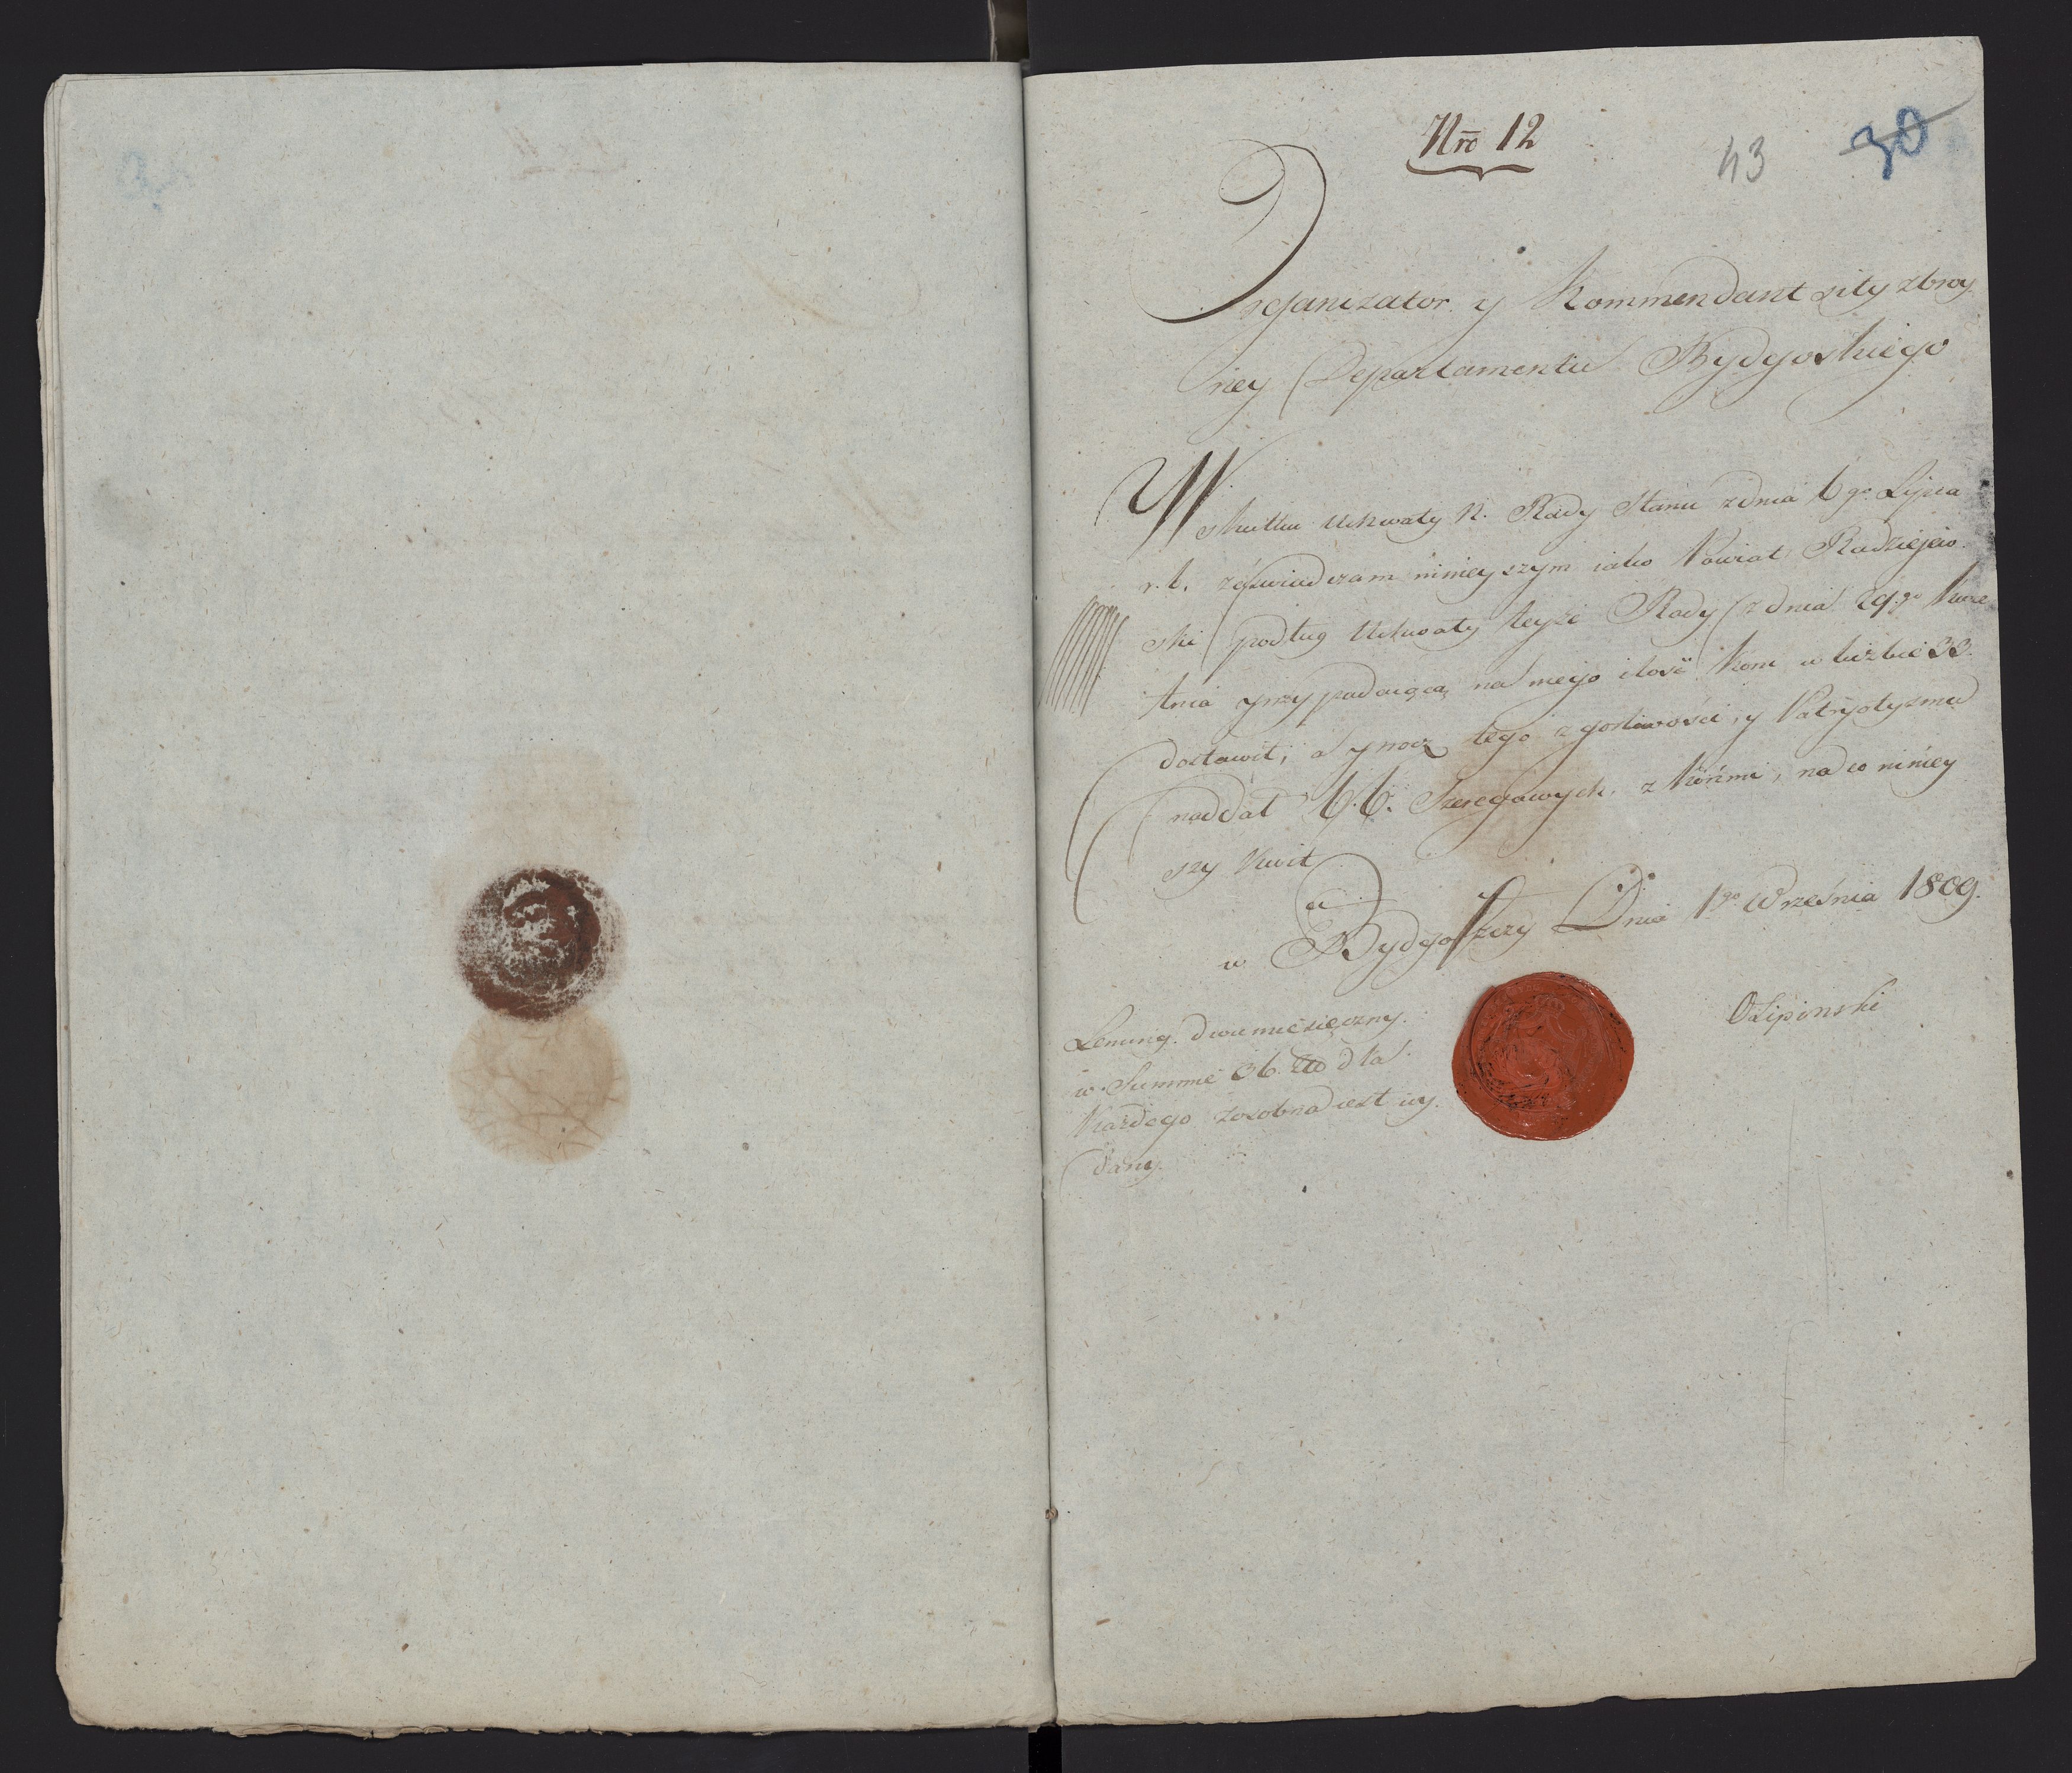 Nro 12
43 30
Organizator y Kommendant siły zbroy
ney Departamentu Bydgoskiego
W skutku Uchwały N. Rady Stanu z dnia 6go Lipca
r. b. zaświadczam ninieyszym iako Powiat Radziejew
ski podług Uchwały teyże Rady z dnia 29go Kwie
tnia przypadaiącą na niego ilość Koni w liczbie 33.
dostawił, a procz tego z gorliwości, y Patryotyzmu
naddał 6.6. Szeregowych, z Końmi, na co niniey
szy Kwit
w Bydgoszczy Dnia 1go Września 1809.
OLipinski
Lenung. dwumiesięczny.
w Summie 36. dla
Każdego zosobna iest wy
dany.